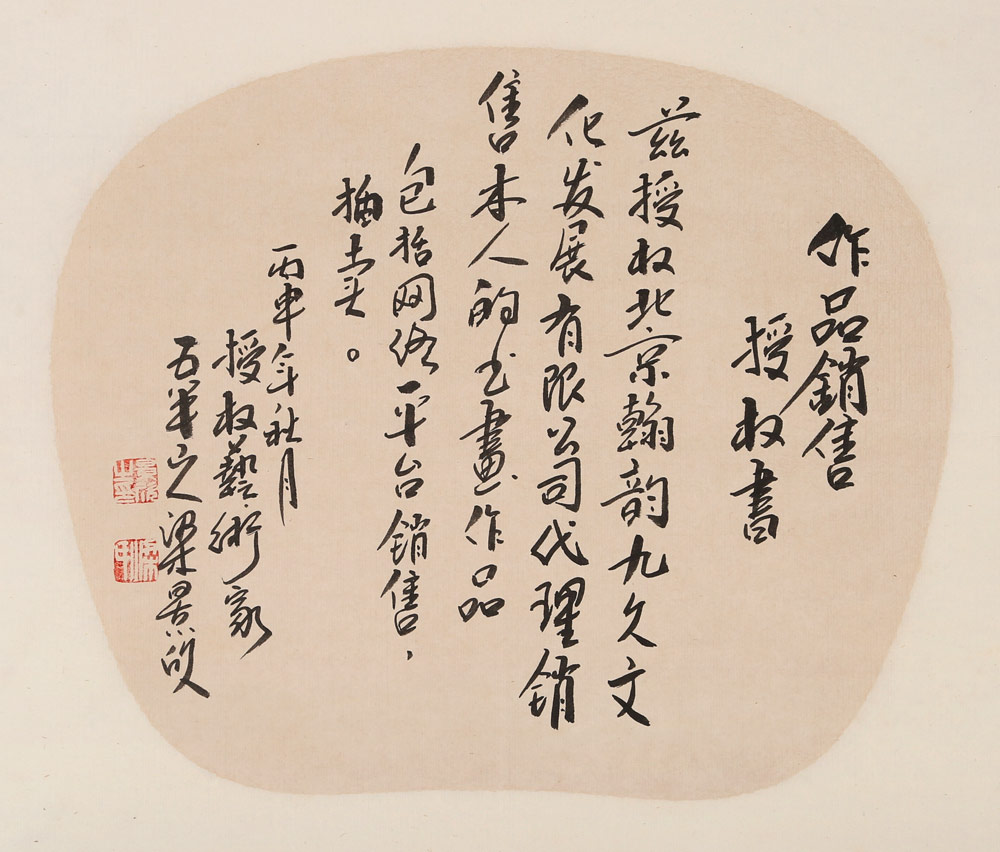 作品銷售
授权書
兹授权北京翰韵九久文
化发展有限公司代理銷
售本人的书畫作品
包括网络平台銷售，
拍卖。
丙申年秋月
授权藝術家
梁景